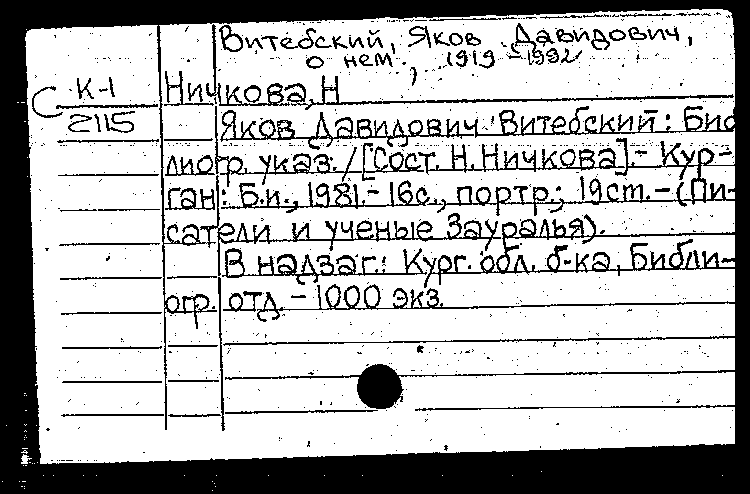 Витебский, Яков Давидович,
о нем, 1919-1992
С К-1
2115
Ничкова, Н
Яков Давидович Витебский: Биб
лиогр. указ. / [Сост. Н. Ничкова].- Кур-
ган: Б.и., 1981.- 16с., портр.; 19 cm. - (Пи-
сатели и ученые Зауралья).
В надзаг.: Кург. обл. б-ка, Библи-
огр. отд. - 1000 экз.